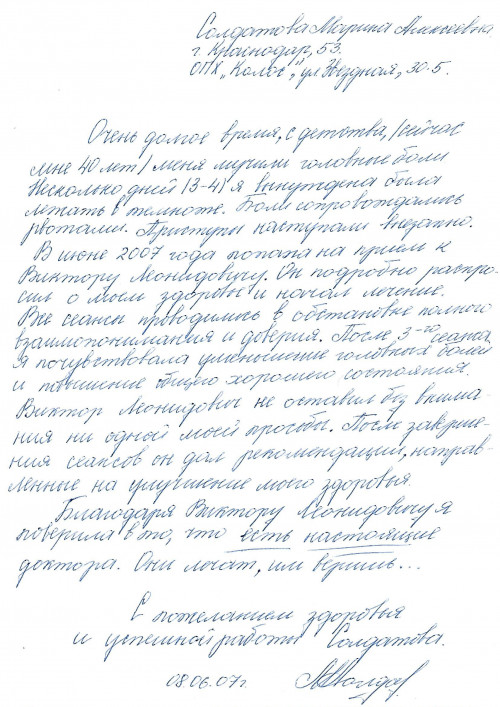 Солдатова Марина Алексеевна
г. Краснодар, 53.
ОПХ „Колос", ул Звездная, 30-5.
Очень долгое время, с детства, /сейчас
мне 40 лет/ меня мучили головные боли
Несколько дней (3-4) я вынуждена была
лежать в темноте. Боли сопровождались
рвотами. Приступы наступали внезапно.
В июне 2007 года попала на прием к
Виктору Леонидовичу. Он подробно распро-
сил о моем здоровье и начал лечение.
Все сеансы проводились в обстановке полного
взаимопонимания и доверия. После 3-го сеанса
я почувствовала уменьшение головных болей
и повышение общего хорошего состояния.
Виктор Леонидович не оставил без внима-
ния ни одной моей просьбы. После заверше-
ния сеансов он дал рекомендации, направ-
ленные на улучшение моего здоровья.
Благодаря Виктору Леонидовичу я
поверила в то, что есть настоящие
доктора. Они лечат, им веришь...
С пожеланием здоровья
и успешной работы Солдатова.
08.06.07г.